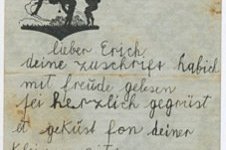 lieber Erich
deine zuschrift habich
mit freude gelesen
sei herzlich gegrüst
et geküst fon deiner
klein